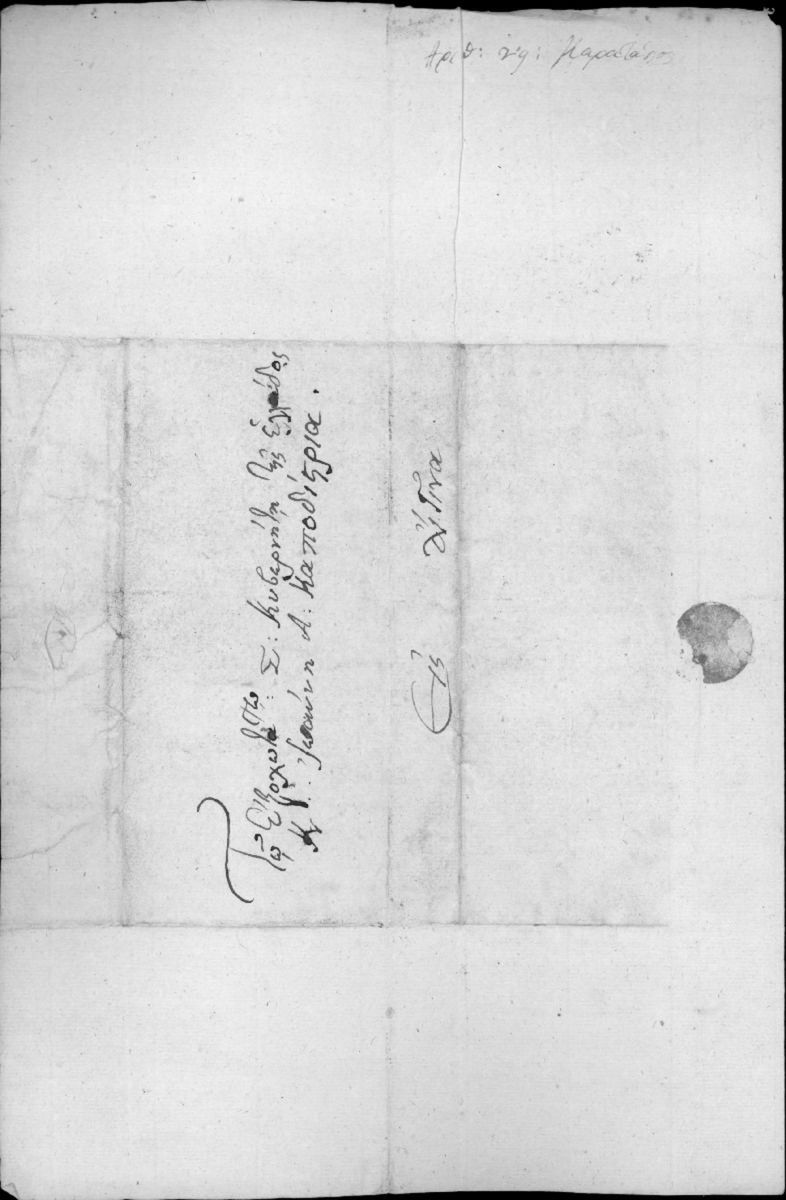 Ἀριθ: Καρατάσος
Τῷ Ἐξοχωτάτῳ: Σ: Κυβερνήτῃ τῆς Ἑλλάδος
Κ: Ἰωάννῃ Α: Καποδίςρια.
Εἰς Αἴγινα